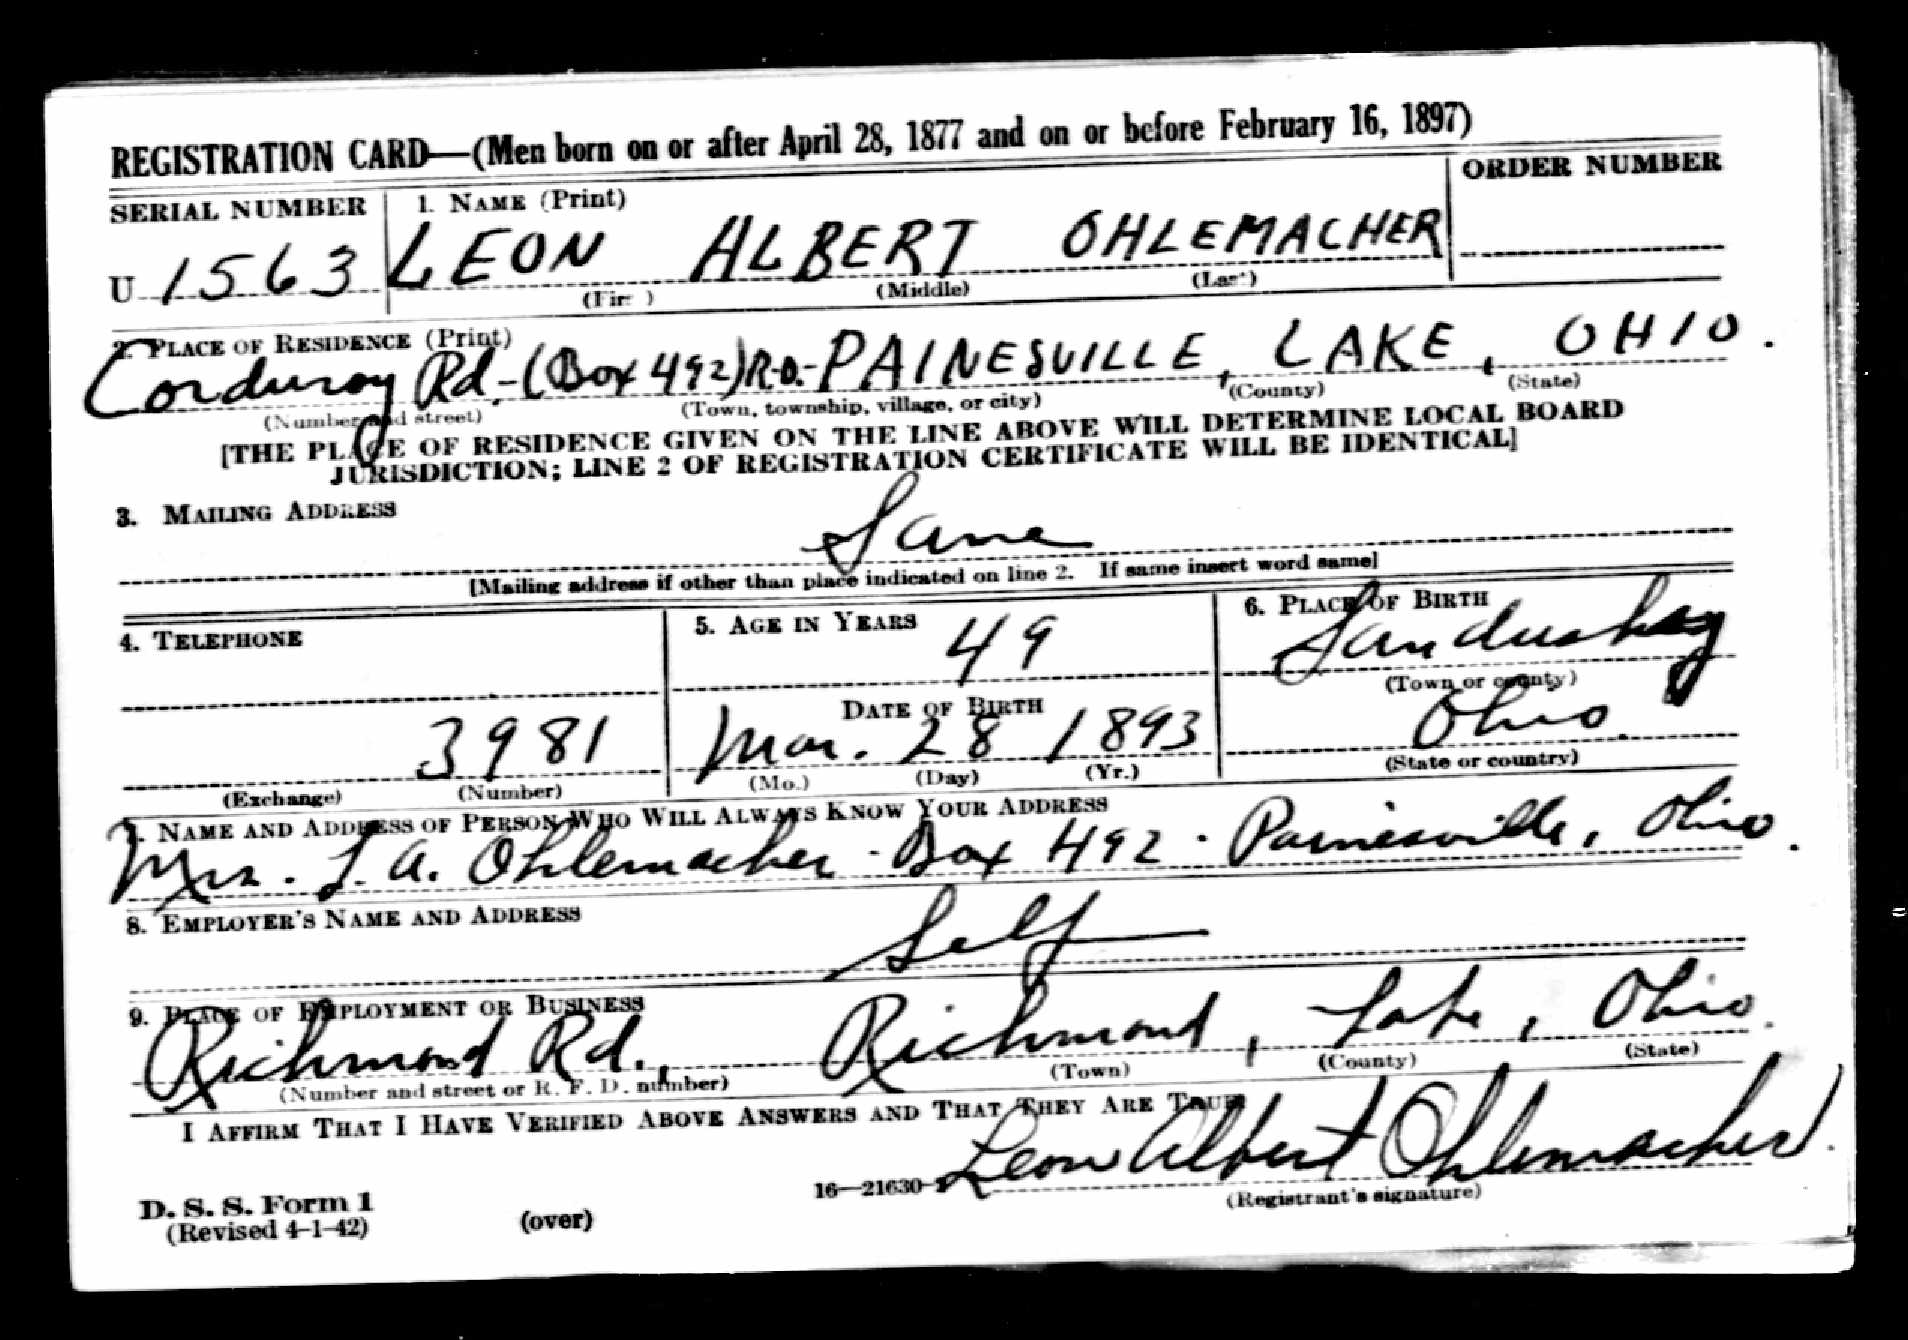 REGISTRATION CARD—(Men born on or after April 28, 1877 and on or before February 16, 1897)
SERIAL NUMBER
1. NAME (Print)
ORDER NUMBER
U 1563
LEON ALBERT OHLEMACHER
(First) (Middle) (Last)
2. PLACE OF RESIDENCE (Print)
Corduroy Rd.-(Box 492) R.D.-PAINESVILLE, LAKE, OHIO.
(Number and street) (Town, township, village, or city) (County) (State)
[THE PLACE OF RESIDENCE GIVEN ON THE LINE ABOVE WILL DETERMINE LOCAL BOARD
JURISDICTION; LINE 2 OF REGISTRATION CERTIFICATE WILL BE IDENTICAL]
3. MAILING ADDRESS
Same
[Mailing address if other than place indicated on line 2. If same insert word same]
4. TELEPHONE
5. AGE IN YEARS
6. PLACE OF BIRTH
49
Sandusky
(Town or county)
DATE OF BIRTH
3981
Mar. 28 1893
Ohio.
(Exchange) (Number)
(Mo.) (Day) (Yr.)
(State or country)
7. NAME AND ADDRESS OF PERSON WHO WILL ALWAYS KNOW YOUR ADDRESS
Mrs. L. A. Ohlemacher - Box 492 - Painesville, Ohio.
8. EMPLOYER'S NAME AND ADDRESS
Self
9. PLACE OF EMPLOYMENT OR BUSINESS
Richmond Rd., Richmond, Lake, Ohio.
(Number and street or R. F. D. number) (Town) (County) (State)
I AFFIRM THAT I HAVE VERIFIED ABOVE ANSWERS AND THAT THEY ARE TRUE.
Leon Albert Ohlemacher.
D. S. S. Form 1
(Revised 4-1-42)
(over)
16—21630-2
(Registrant's signature)